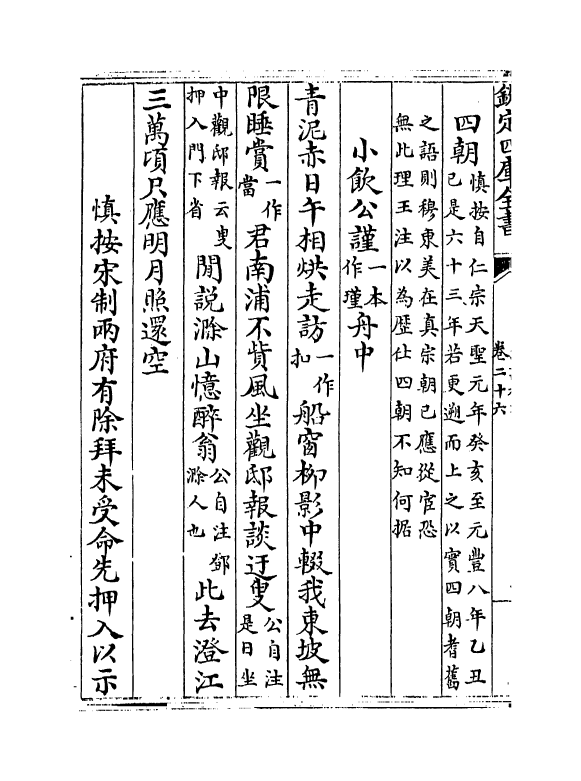 欽定四庫全書
卷二十六
四朝慎按自仁宗天聖元年癸亥至元豐八年乙丑已是六十三年若更遡而上之以實四朝耆舊
之語則穆東美在真宗朝已應從宦恐無此理王注以為歷仕四朝不知何据
小飲公謹一本作瑾舟中
青泥赤日午相烘走訪一作扣船窗柳影中輟我東坡無
限睡賞一作當君南浦不貲風坐觀邸報談迂叟公自注是日坐
中觀邸報云叟押入門下省閒説滁山憶醉翁公自注鄧滁人也此去澄江
三萬頃只應明月照還空
慎按宋制兩府有除拜未受命先押入以示